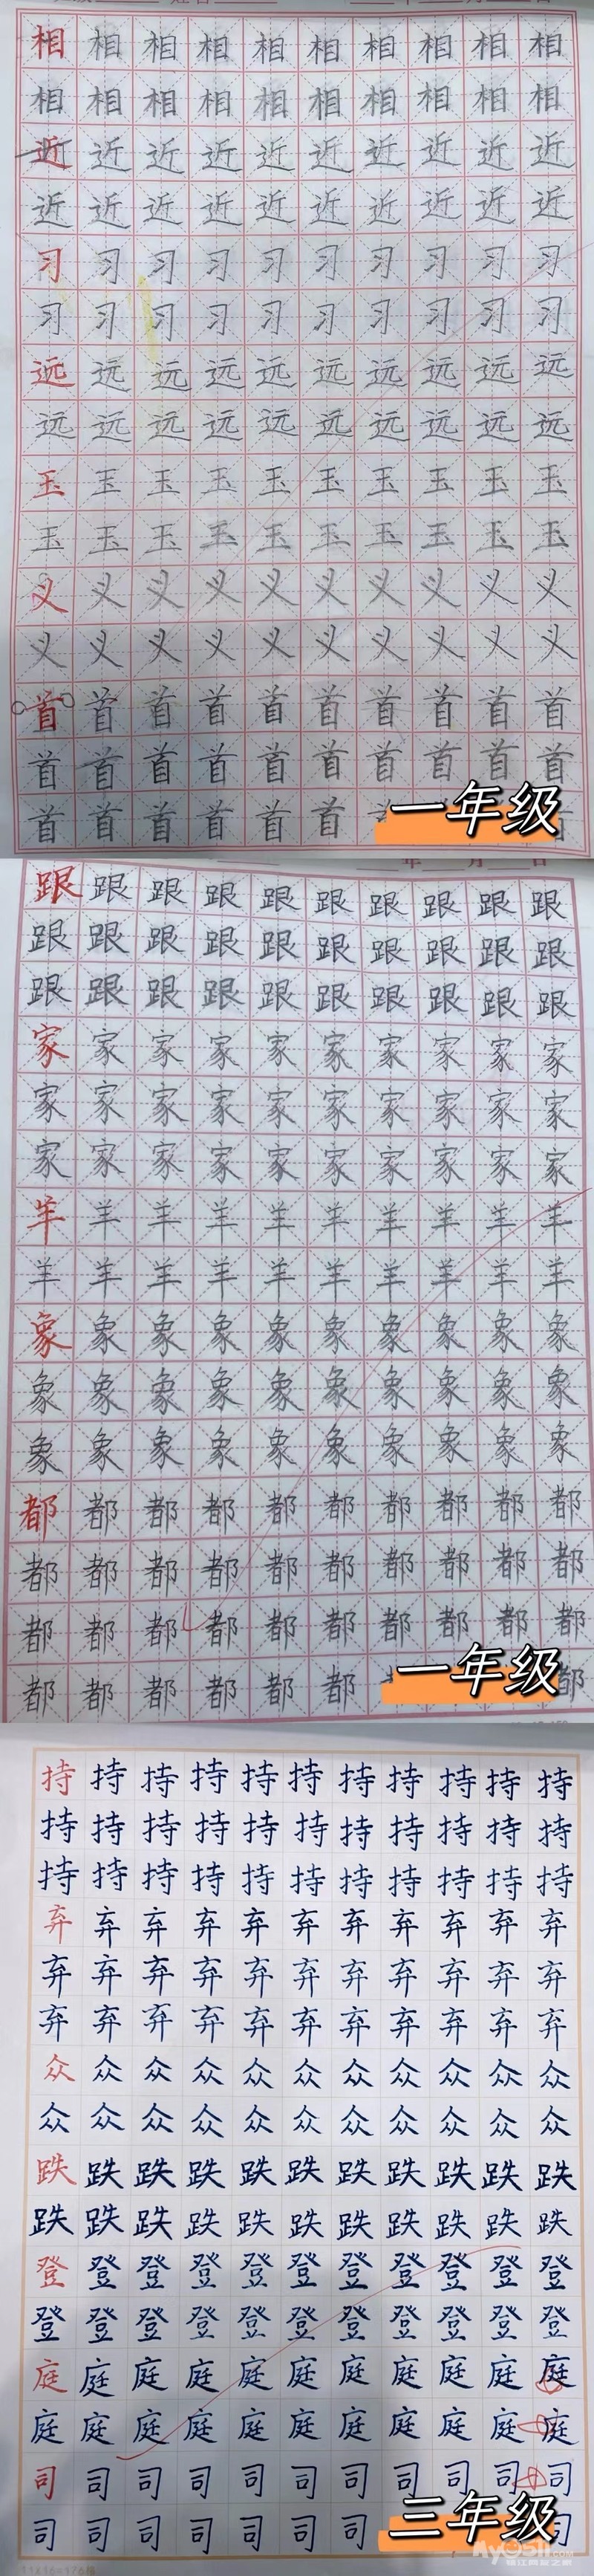 相相相相相相相相相相
相相相相相相相相相相
近近近近近近近近近近
近近近近近近近近近近
习习习习习习习习习习
习习习习习习习习习习
远远远远远远远远远远
远远远远远远远远远远
玉玉玉玉玉玉玉玉玉玉
玉玉玉玉玉玉玉玉玉玉
义义义义义义义义义义
义义义义义义义义义义
首首首首首首首首首首
首首首首首首首首首首
首首首首首首
一年级
年 月 日
跟跟跟跟跟跟跟跟跟跟
跟跟跟跟跟跟跟跟跟跟
跟跟跟跟跟跟跟跟跟跟
家家家家家家家家家家
家家家家家家家家家家
家家家家家家家家家家
羊羊羊羊羊羊羊羊羊羊
羊羊羊羊羊羊羊羊羊羊
象象象象象象象象象象
象象象象象象象象象象
象象象象象象象象象象
都都都都都都都都都都
都都都都都都都都都都
都都都都都都都都都都
都都都都都都都
一年级
持持持持持持持持持持持
持持持持持持持持持持持
持持持持持持持持持持持
弃弃弃弃弃弃弃弃弃弃弃
弃弃弃弃弃弃弃弃弃弃弃
弃弃弃弃弃弃弃弃弃弃弃
众众众众众众众众众众众
众众众众众众众众众众众
跌跌跌跌跌跌跌跌跌跌跌
跌跌跌跌跌跌跌跌跌跌跌
登登登登登登登登登登登
登登登登登登登登登登登
庭庭庭庭庭庭庭庭庭庭庭
庭庭庭庭庭庭庭庭庭庭庭
司司司司司司司司司司司
司司司司司司司司
三年级